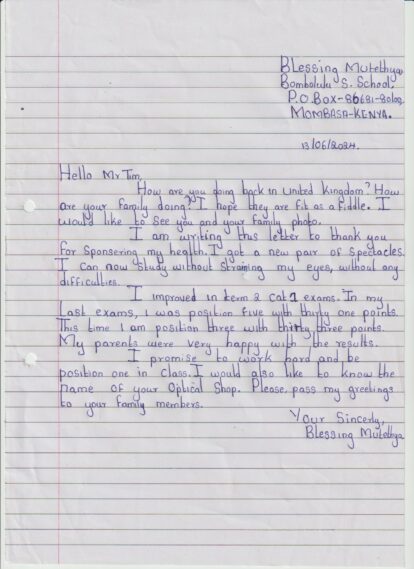 Blessing Mutethya,
Bombolulu S. School,
P.O.BOX-86681-80100
MOMBASA-KENYA.
13/06/2024.
Hello Mr Tim,
How are you doing back in United Kingdom? How
are your family doing? I hope they are fit as a fiddle. I
would like to see you and your family photo.
I am writing this letter to thank you
for sponsering my health. I got a new pair of spectacles.
I can now study without straining my eyes, without any
difficulties.
I improved in term 2 cat 1 exams. In my
last exams, I was position five with thirty one points.
This time I am position three with thirty three points.
My parents were very happy with the results.
I promise to work hard and be
position one in class. I would also like to know the
name of your Optical Shop. Please, pass my greetings
to your family members.
Your Sincerly,
Blessing Mutethya